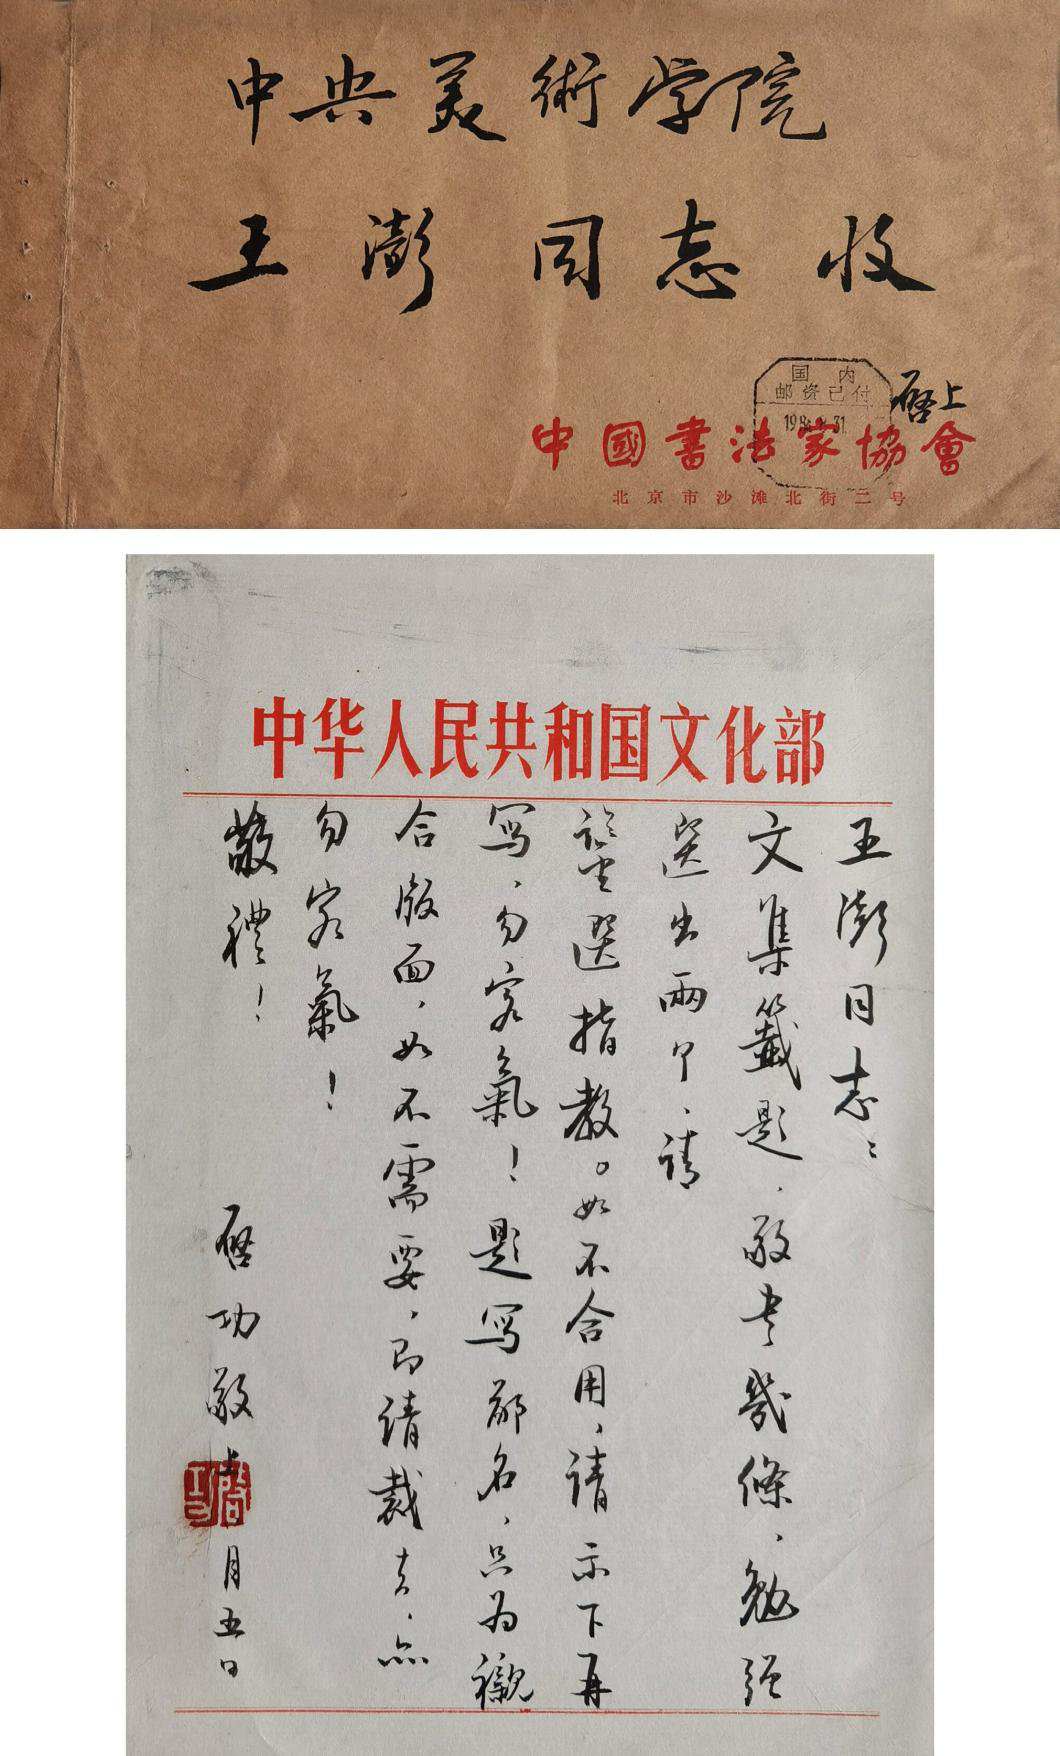 中央美術学院
王澎同志收
国内
邮资已付
启上
中國書法家協會
北京市沙滩北街二号
中华人民共和国文化部
王澎同志：
文集籤题，敬书幾條，勉强
選出兩个，请
選指教。如不合用，请示下再
写，勿客氣！题写鄙名，只为襯
合版面，如不需要，即请裁去，亦
勿客氣！
敬禮！
启功敬上 月五日